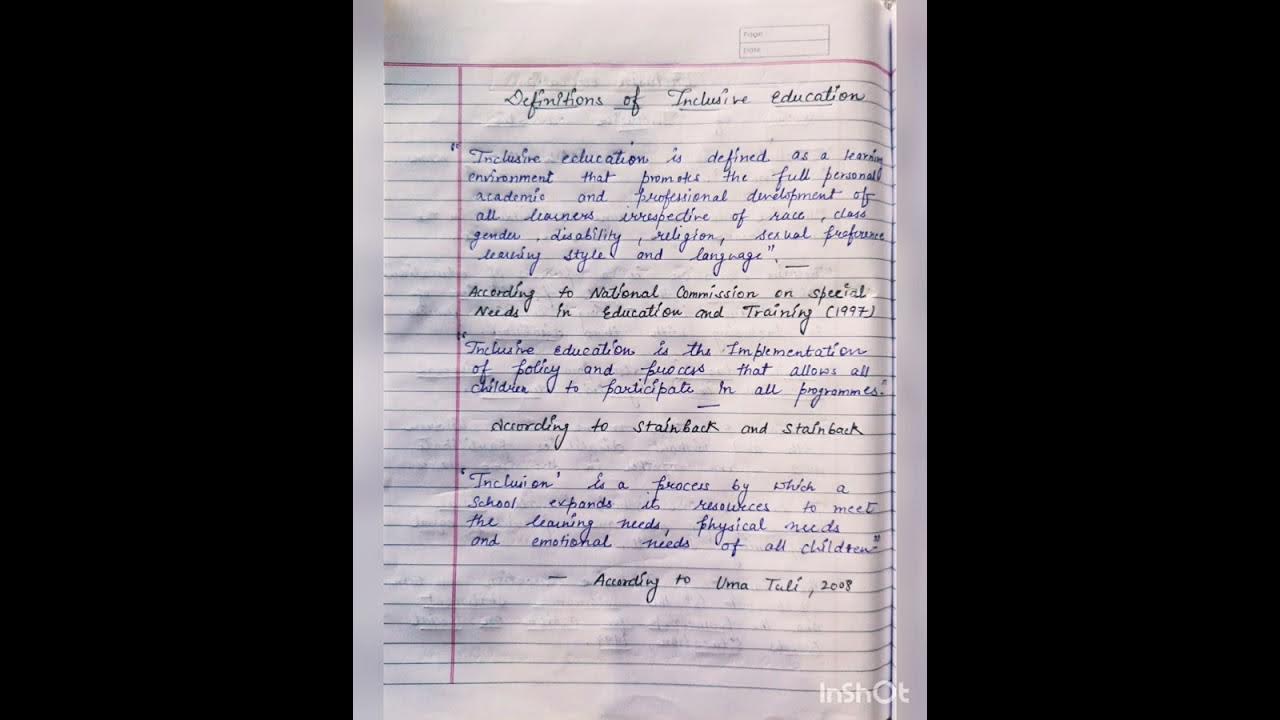 Page
Date
Definitions of Inclusive Education
"Inclusive education is defined as a learnin
environment that promots the full personal
academic and professional development of
all learners irrespective of race, class
gender, disability, religion, sexual preference
learning style and language". —
According to National Commission on special
Needs in Education and Training (1997)
"Inclusive Education is the Implementation
of policy and process that allows all
children to participate in all programmes."
—
According to Stainback and Stainback
'Inclusion' is a process by which a
School expands its resources to meet
the learning needs, physical needs
and emotional needs of all children"
— According to Uma Tuli, 2008
InShOt